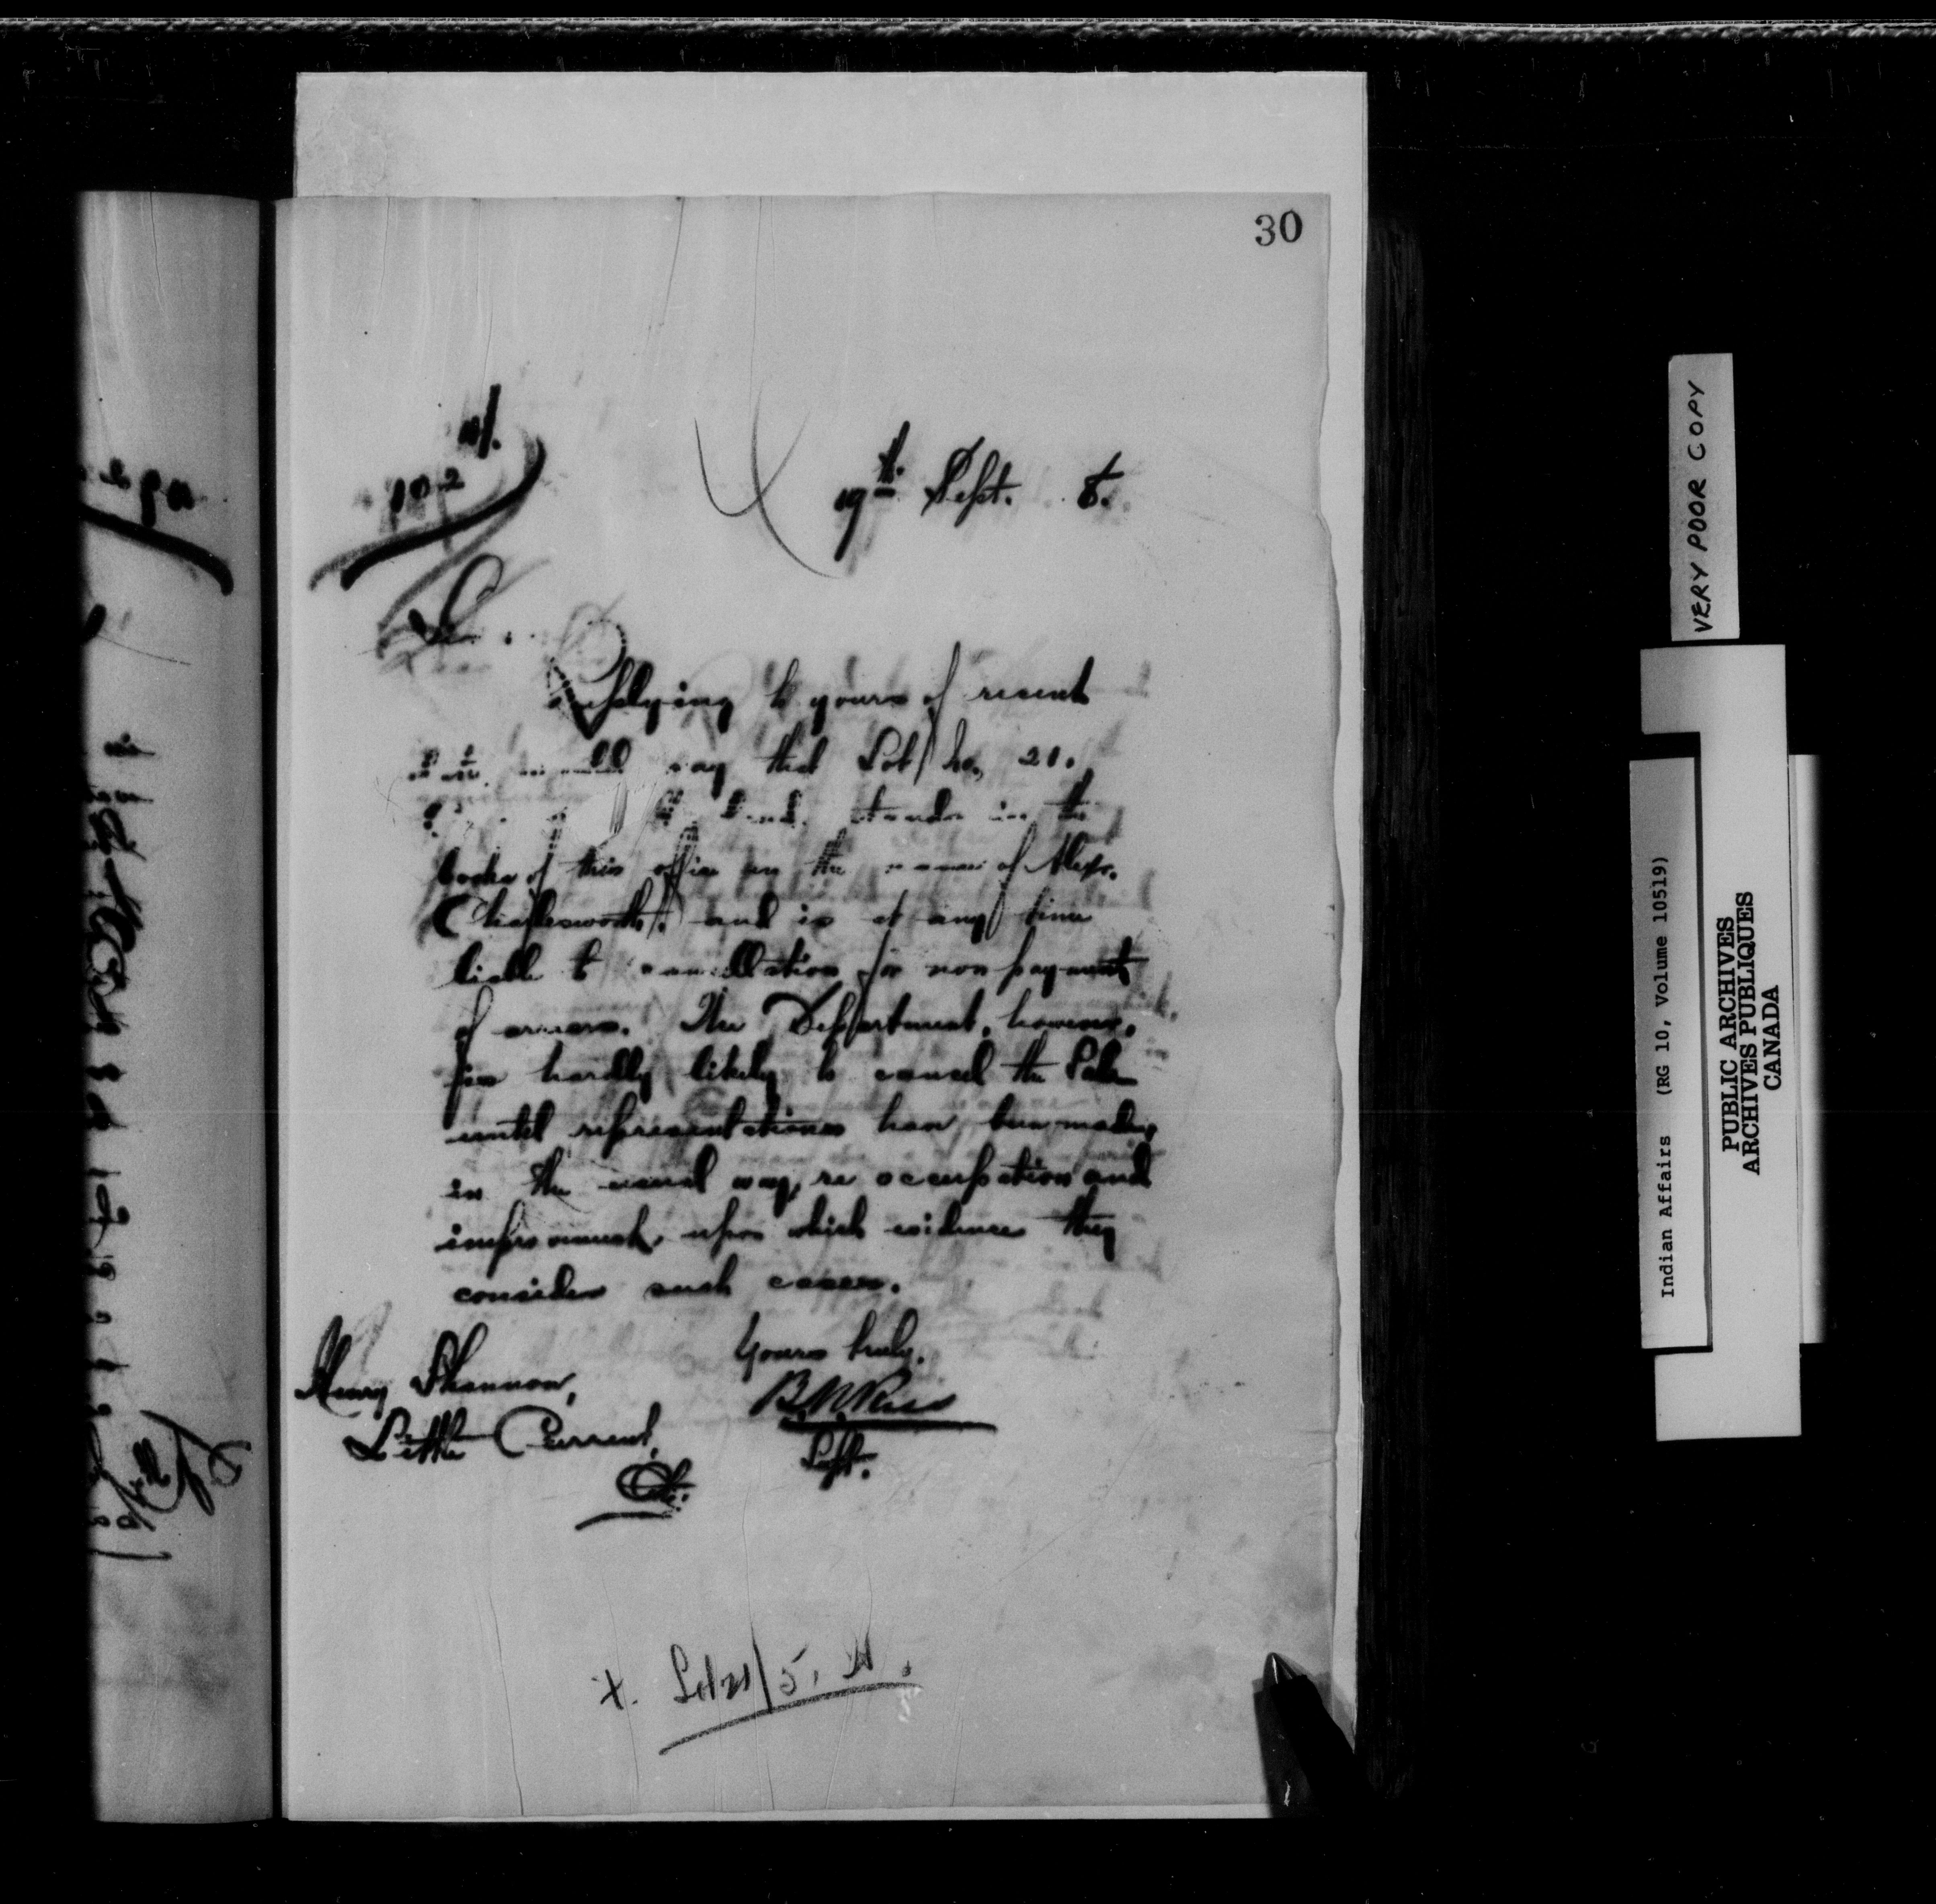 30
10/.
102
19th Sept. 8.
Sir.
Replying to yours of recent
date would say that Lot No. 21.
stands in the
books of this office in the name of Alexr.
Charlesworth. and is at any time
liable to cancellation for non payment
of arrears. The Department, however,
is hardly likely to cancel the Sale
until representations have been made,
in the usual way, re occupation and
improvements upon which evidence they
consider such cases.
Yours truly.
Henry Shannon,
B W Ross
Little Current,
Supt.
Ont.
x. Lot 21/5.
VERY POOR COPY
Indian Affairs (RG 10, Volume 10519)
PUBLIC ARCHIVES
ARCHIVES PUBLIQUES
CANADA